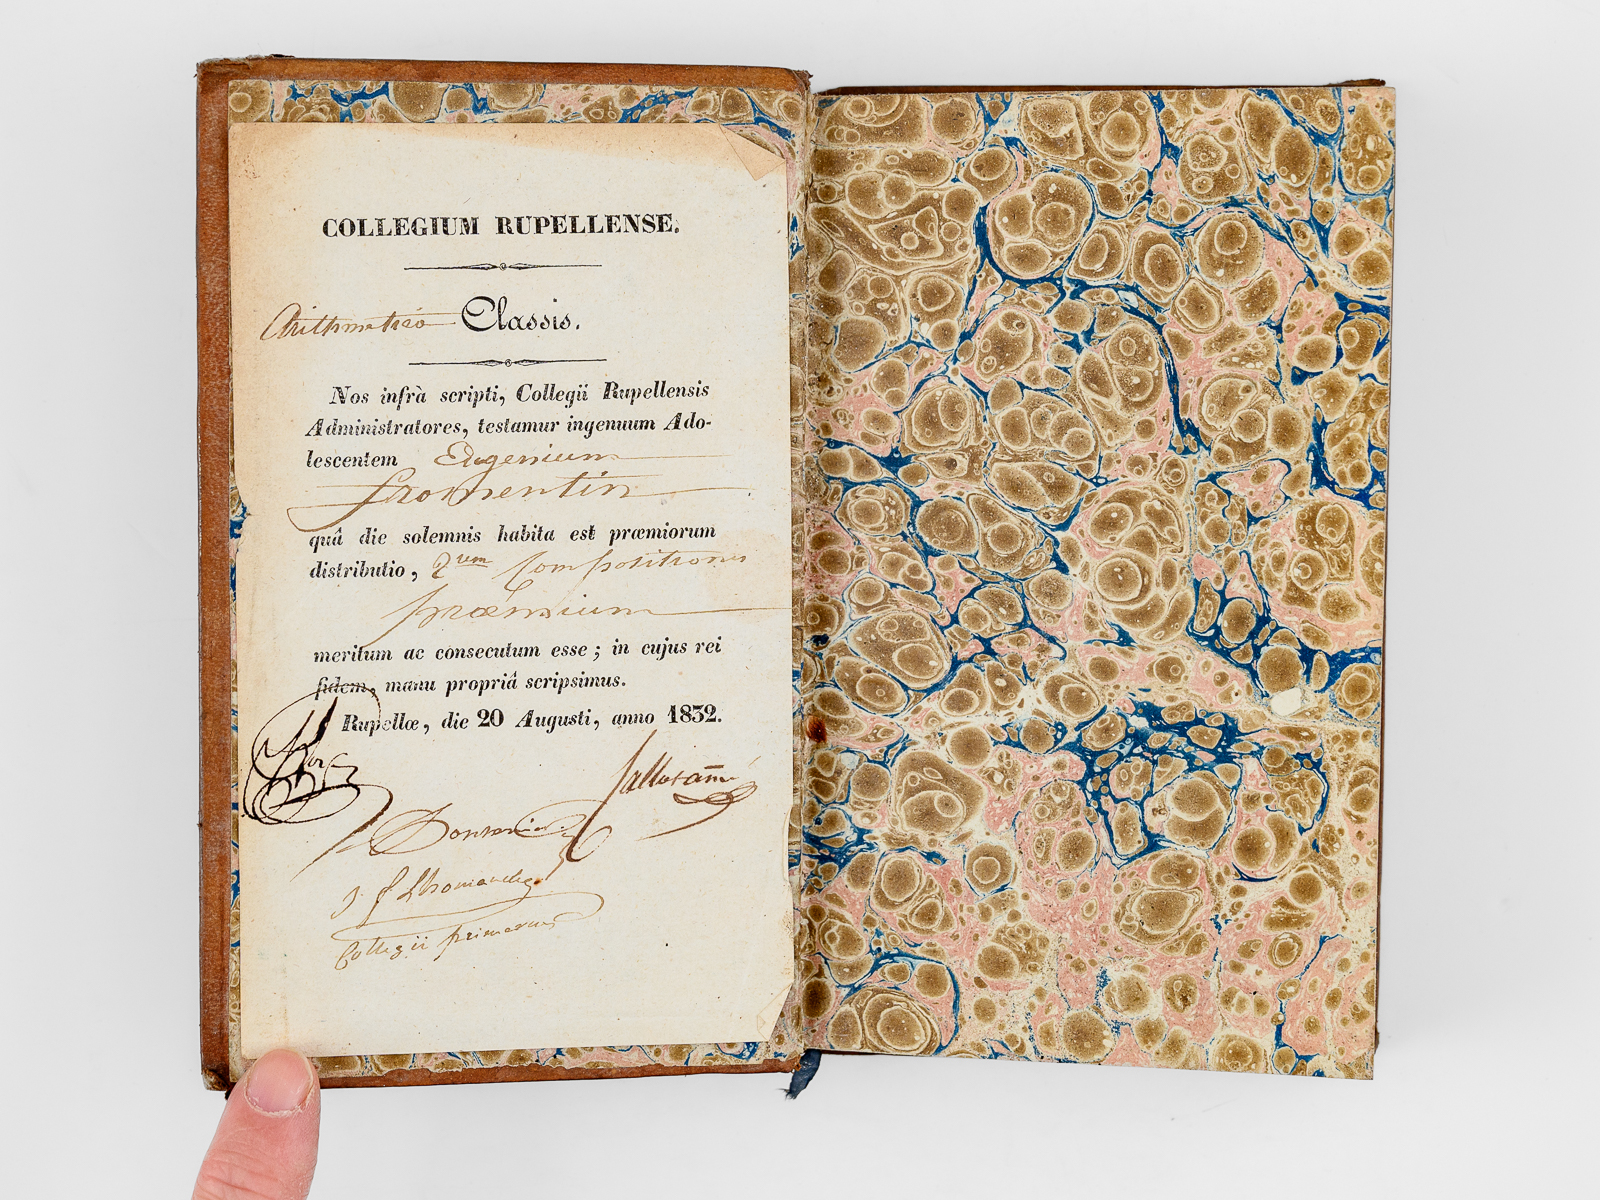 COLLEGIUM RUPELLENSE.
Arithmetica Classis.
Nos infrà scripti, Collegii Rupellensis
Administratores, testamur ingenuum Ado-
lescentem Eugenium
fromentin
quâ die solemnis habita est præmiorum
distributio, 2um Compositionis
præmium
meritum ac consecutum esse ; in cujus rei
fidem, manu propriâ scripsimus.
Rupellæ, die 20 Augusti, anno 1832.
Collegii primarius